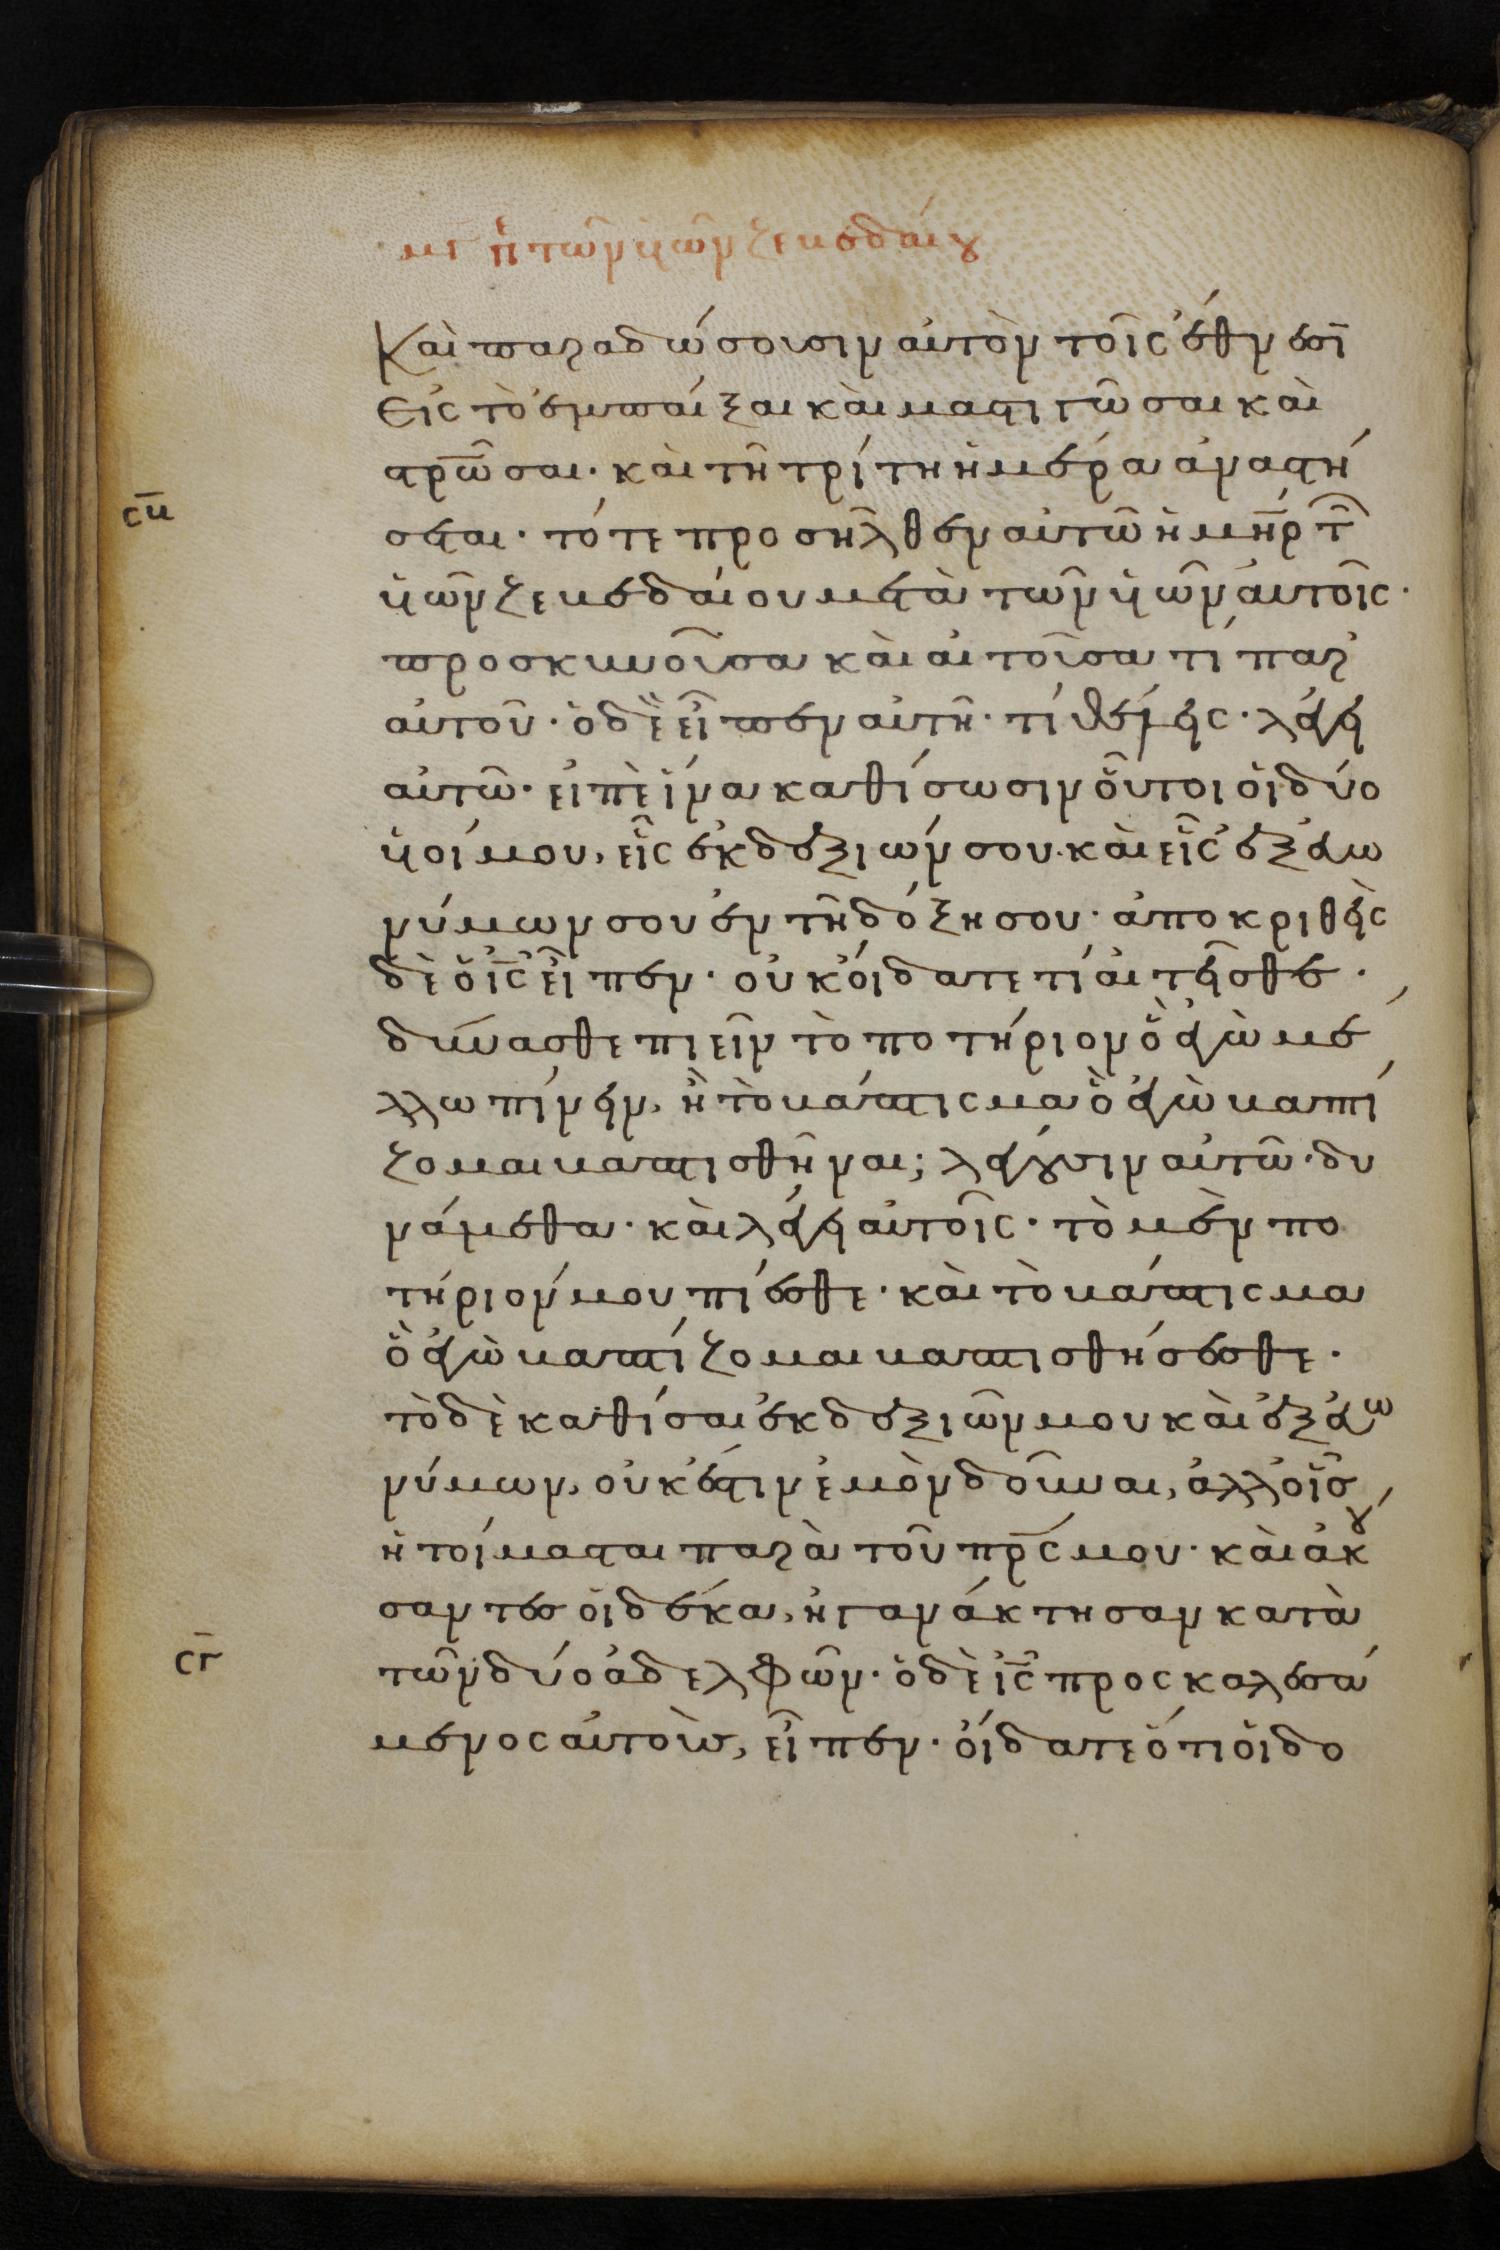 με πε τῶν ὑιῶν ζεβεδαίου
Καὶ παραδώσουσιν αὐτὸν τοῖς ἔθνεσῑ
εἰς τὸ ἐμπαίξαι καὶ μαστιγῶσαι καὶ
στρῶσαι· καὶ τῆ τρίτη ἡμέρα ἀναστή
σβ
σεται· τότε προσῆλθεν αὐτῶ ἡ μηρ τ
ὑιῶν ζεβεδαίου μετὰ τῶν ὑιῶν αὐτοῖς·
προσκυνοῦσα καὶ αἰτοῦσα τί παρ
αὐτοῦ· ὁ δὲ εἶπεν αὐτῆ· τί θέλεις· λέγει
αὐτῶ· εἰπὲ ἵνα καθίσωσιν οὗτοι οἱ δύο
ὑιοί μου, εἷς ἐκ δεξιών σου· καὶ εἷς ἐξ εὐω
νύμων σου ἐν τῆ δόξη σου· ἀποκριθεὶς
δὲ ὁ ις εἶπεν· οὐκ οἴδατε τί αἰτεῖσθε·
δύνασθε πιεῖν τὸ ποτήριον ὃ ἐγὼ μέ
λλω πίνειν, ἢ τὸ βάπτισμα ὃ ἐγὼ βαπτί
ζομαι βαπτισθῆναι; λέγουσιν αὐτῶ· δυ
νάμεθα· καὶ λέγει αὐτοῖς· τὸ μὲν πο
τήριόν μου πίεσθε· καὶ τὸ βάπτισμα
ὃ ἐγὼ βαπτίζομαι βαπτισθήσεσθε·
τὸ δὲ καθίσαι ἐκ δεξιῶν μου καὶ ἐξ εὐω
νύμων, οὐκ ἔστιν ἐμὸν δοῦναι, ἀλλ οἷς
ἡτοίμασται παρὰ τοῦ πρς μου· καὶ ἀκού
σαντες οἱ δέκα, ἠγανάκτησαν κατὰ
σγ
τῶν δύο ἀδελφῶν· ὁ δὲ ις προσκαλεσά
μενος αὐτοὺς, εἶπεν· οἴδατε ὅτι οἱ δο